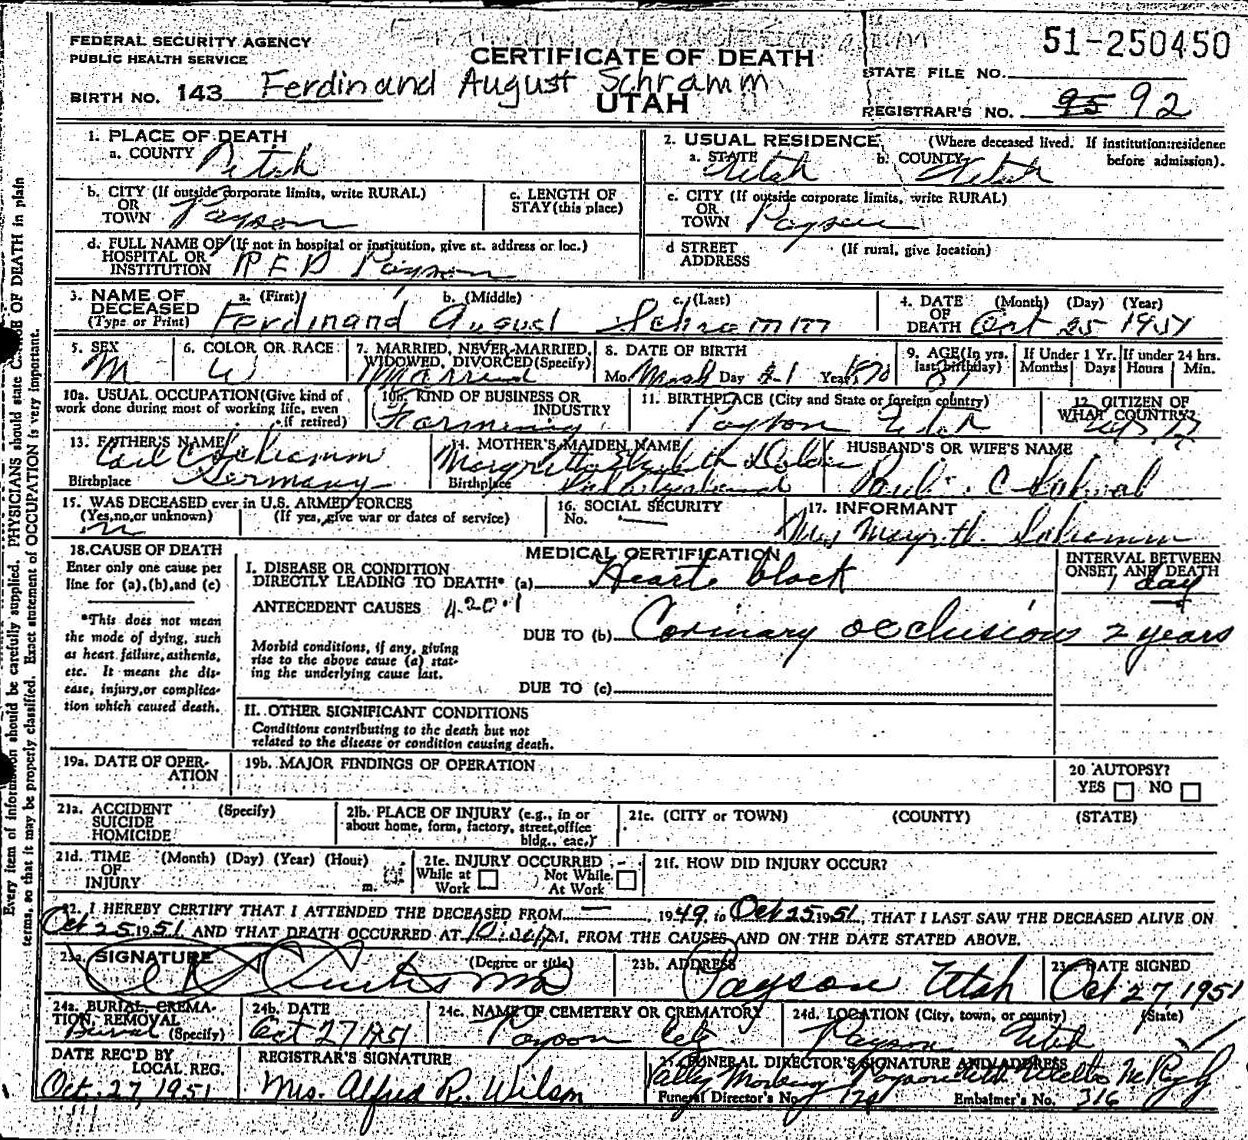 51-250450
FEDERAL SECURITY AGENCY
PUBLIC HEALTH SERVICE
CERTIFICATE OF DEATH
STATE FILE NO.
BIRTH NO. 143 Ferdinand August Schramm
UTAH
REGISTRAR'S NO. 95 92
1. PLACE OF DEATH
a. COUNTY Utah
2. USUAL RESIDENCE (Where deceased lived. If institution:residence before admission).
a. STATE Utah b. COUNTY Utah
b. CITY (If outside corporate limits, write RURAL)
OR
TOWN Payson
c. LENGTH OF
STAY (this place)
c. CITY (If outside corporate limits, write RURAL)
OR
TOWN Payson
d. FULL NAME OF (If not in hospital or institution, give st. address or loc.)
HOSPITAL OR
INSTITUTION RFD Payson
d STREET
ADDRESS
(If rural, give location)
3. NAME OF
DECEASED
(Type or Print)
a. (First) b. (Middle) c. (Last)
Ferdinand August Schramm
4. DATE
OF
DEATH
(Month) (Day) (Year)
Oct 25 1951
5. SEX
M
6. COLOR OR RACE
W
7. MARRIED, NEVER-MARRIED,
WIDOWED, DIVORCED(Specify)
Married
8. DATE OF BIRTH
Mo. Day Year 1870
9. AGE(In yrs.
last birthday)
81
If Under 1 Yr.
Months Days
If under 24 hrs.
Hours Min.
10a. USUAL OCCUPATION(Give kind of
work done during most of working life, even
if retired)
10b. KIND OF BUSINESS OR
INDUSTRY
Farming
11. BIRTHPLACE (City and State or foreign country)
Payson Utah
12. CITIZEN OF
WHAT COUNTRY?
13. FATHER'S NAME
Carl C Schramm
Birthplace Germany
14. MOTHER'S MAIDEN NAME
Birthplace
HUSBAND'S OR WIFE'S NAME
15. WAS DECEASED ever in U.S. ARMED FORCES
(Yes,no,or unknown) (If yes, give war or dates of service)
16. SOCIAL SECURITY
No.
17. INFORMANT
Mrs Schramm
18. CAUSE OF DEATH
Enter only one cause per
line for (a),(b),and (c)
*This does not mean
the mode of dying, such
as heart failure, asthenia,
etc. It means the dis-
ease, injury,or complica-
tion which caused death.
MEDICAL CERTIFICATION
INTERVAL BETWEEN
ONSET AND DEATH
I. DISEASE OR CONDITION
DIRECTLY LEADING TO DEATH* (a) Heart block 1 day
ANTECEDENT CAUSES 420.1
DUE TO (b) Coronary occlusion 2 years
Morbid conditions, if any, giving
rise to the above cause (a) stat-
ing the underlying cause last.
DUE TO (c)
II. OTHER SIGNIFICANT CONDITIONS
Conditions contributing to the death but not
related to the disease or condition causing death.
19a. DATE OF OPER-
ATION
19b. MAJOR FINDINGS OF OPERATION
20 AUTOPSY?
YES NO
21a. ACCIDENT (Specify)
SUICIDE
HOMICIDE
21b. PLACE OF INJURY (e.g., in or
about home, form, factory, street,office
bldg., eac.)
21c. (CITY or TOWN) (COUNTY) (STATE)
21d. TIME (Month) (Day) (Year) (Hour)
OF
INJURY m.
21e. INJURY OCCURRED
While at Work Not While At Work
21f. HOW DID INJURY OCCUR?
22. I HEREBY CERTIFY THAT I ATTENDED THE DECEASED FROM — 1949, to Oct 25 1951, THAT I LAST SAW THE DECEASED ALIVE ON
Oct 25 1951 AND THAT DEATH OCCURRED AT M, FROM THE CAUSES AND ON THE DATE STATED ABOVE.
23a. SIGNATURE (Degree or title)
Curtis MD
23b. ADDRESS
Payson Utah
23c. DATE SIGNED
Oct 27, 1951
24a. BURIAL, CREMA-
TION, REMOVAL
Burial (Specify)
24b. DATE
Oct 27 1951
24c. NAME OF CEMETERY OR CREMATORY
Payson City
24d. LOCATION (City, town, or county) (State)
Payson Utah
DATE REC'D BY
LOCAL REG.
Oct. 27, 1951
REGISTRAR'S SIGNATURE
Mrs. Alfred R. Wilson
25. FUNERAL DIRECTOR'S SIGNATURE AND ADDRESS
Valley Mortuary Payson Utah
Funeral Director's No. Embalmer's No. 316
Every item of information should be carefully supplied. PHYSICIANS should state CAUSE OF DEATH in plain
terms, so that it may be properly classified. Exact statement of OCCUPATION is very important.